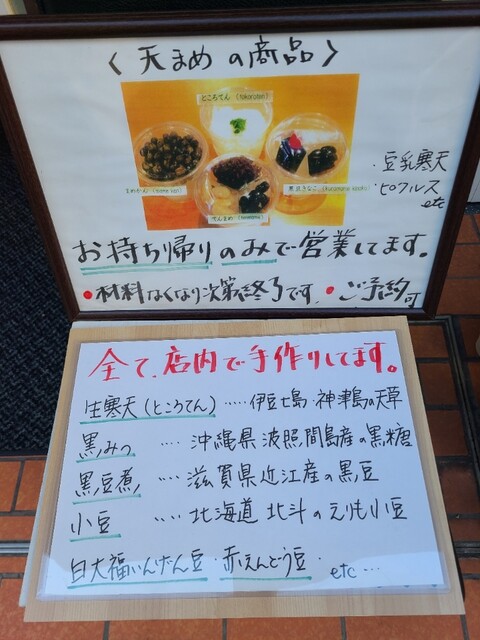 〈天まめの商品〉
ところてん (tokoroten)
まめかん (mame kan)
てんまめ
黒豆きなこ
・豆乳寒天
・ピクルス
etc
お持ち帰りのみで営業してます。
・材料なくなり次第終了です。・ご予約可
全て、店内で手作りしてます。
生寒天(ところてん)‥‥‥伊豆七島・神津島の天草
黒みつ ‥‥ 沖縄県 波照間島産の黒糖
黒豆煮 ‥‥ 滋賀県近江産の黒豆
小豆 ‥‥ 北海道 北斗のえりも小豆
白大福いんげん豆・赤えんどう豆・ etc‥‥